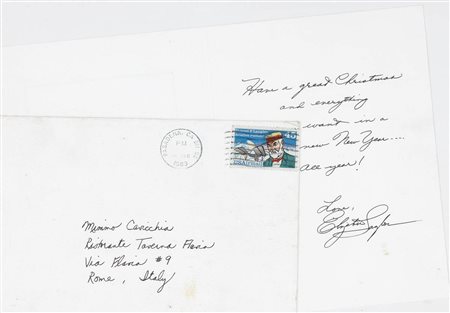 Have a great Christmas
and everything
want in a
new New Year....
All year!
Love,
Elizabeth Taylor
PASADENA, CA
PM
1983
USAirmail
40
Mimmo Cavicchia
Ristorante Taverna Flavia
Via Flavia #9
Rome, Italy